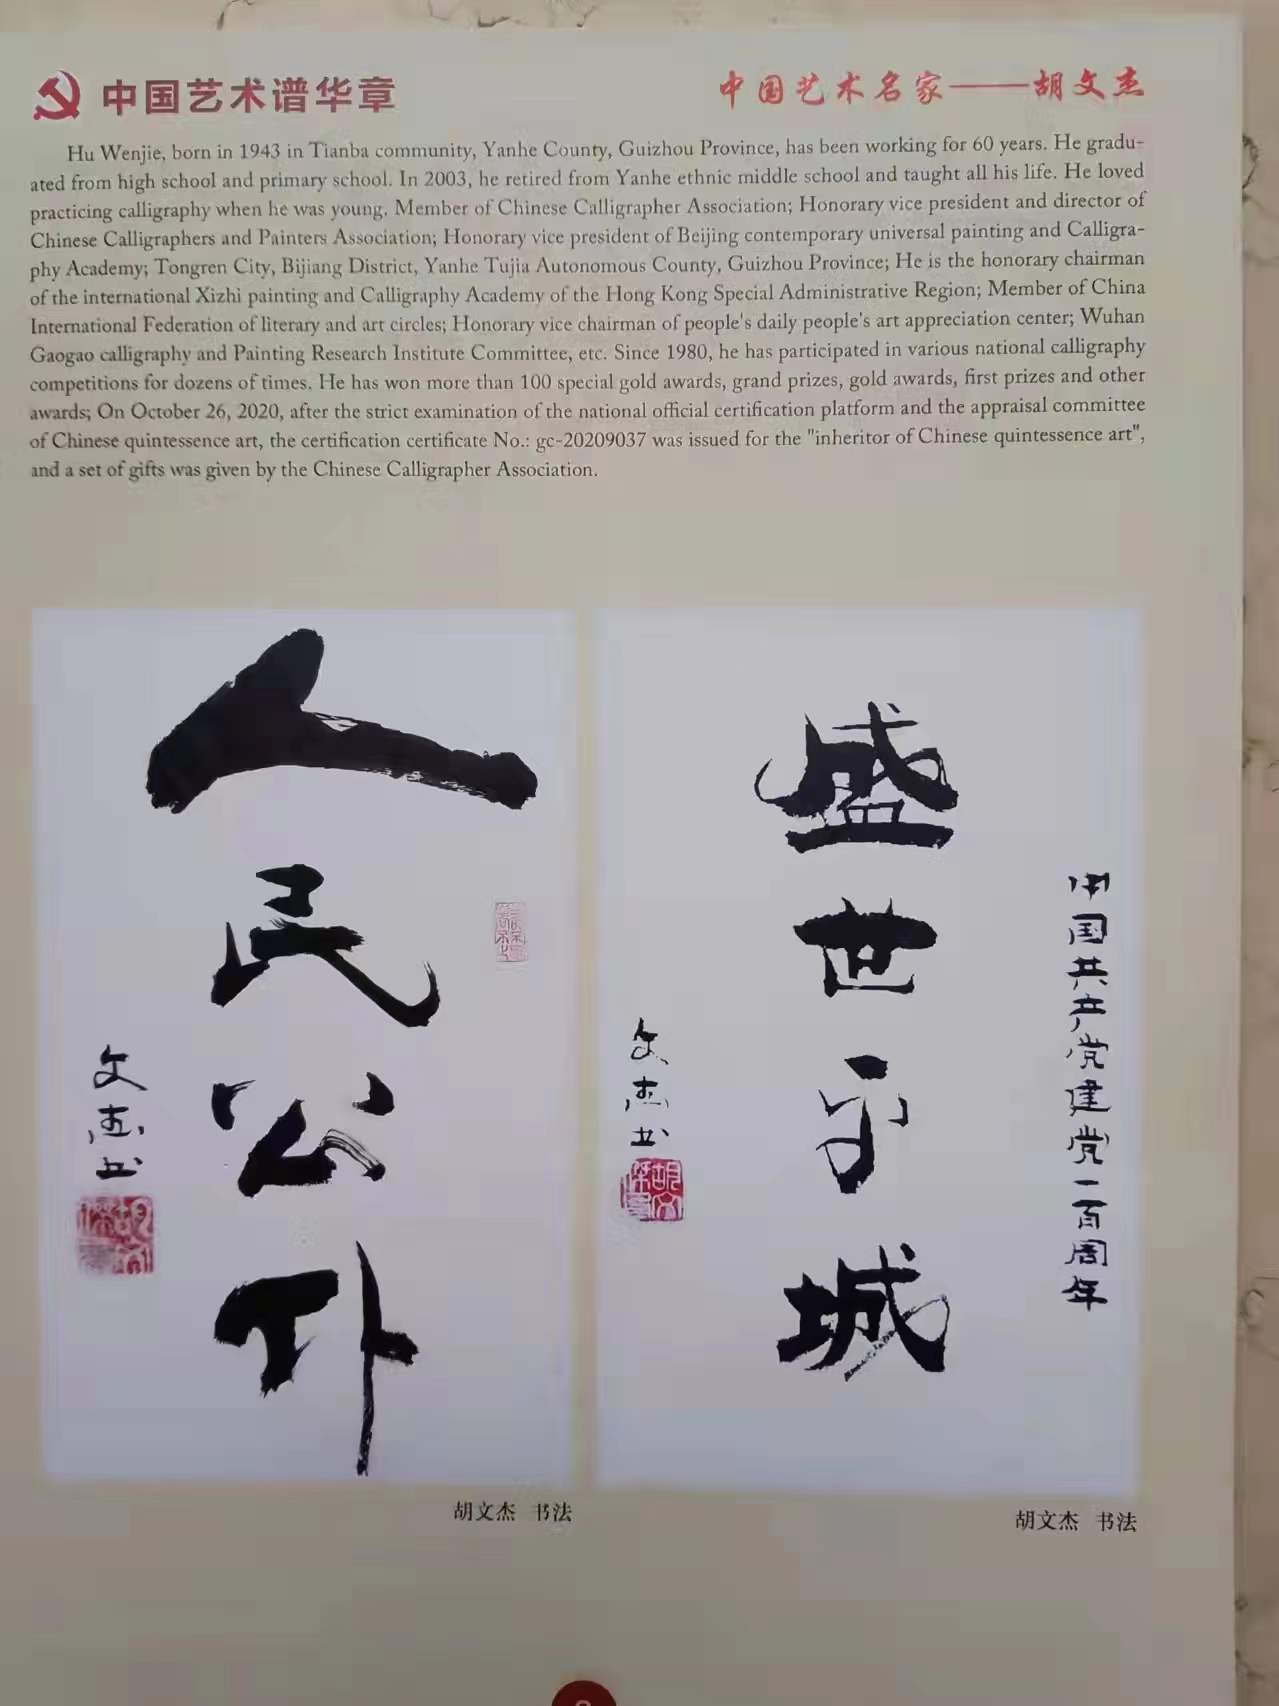 中国艺术谱华章
中国艺术名家——胡文杰
Hu Wenjie, born in 1943 in Tianba community, Yanhe County, Guizhou Province, has been working for 60 years. He gradu-
ated from high school and primary school. In 2003, he retired from Yanhe ethnic middle school and taught all his life. He loved
practicing calligraphy when he was young. Member of Chinese Calligrapher Association; Honorary vice president and director of
Chinese Calligraphers and Painters Association; Honorary vice president of Beijing contemporary universal painting and Calligra-
phy Academy; Tongren City, Bijiang District, Yanhe Tujia Autonomous County, Guizhou Province; He is the honorary chairman
of the international Xizhi painting and Calligraphy Academy of the Hong Kong Special Administrative Region; Member of China
International Federation of literary and art circles; Honorary vice chairman of people's daily people's art appreciation center; Wuhan
Gaogao calligraphy and Painting Research Institute Committee, etc. Since 1980, he has participated in various national calligraphy
competitions for dozens of times. He has won more than 100 special gold awards, grand prizes, gold awards, first prizes and other
awards; On October 26, 2020, after the strict examination of the national official certification platform and the appraisal committee
of Chinese quintessence art, the certification certificate No.: gc-20209037 was issued for the "inheritor of Chinese quintessence art",
and a set of gifts was given by the Chinese Calligrapher Association.
人民公仆
文杰书
胡文杰 书法
中国共产党建党一百周年
盛世平城
文杰书
胡文杰 书法